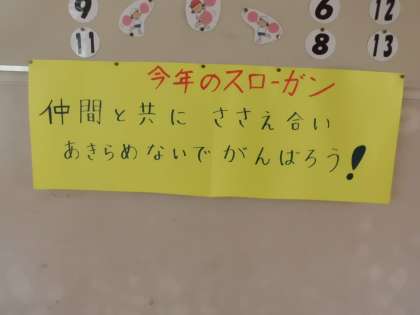 9 6 12
11 8 13
今年のスローガン
仲間と共に ささえ合い
あきらめないで がんばろう!